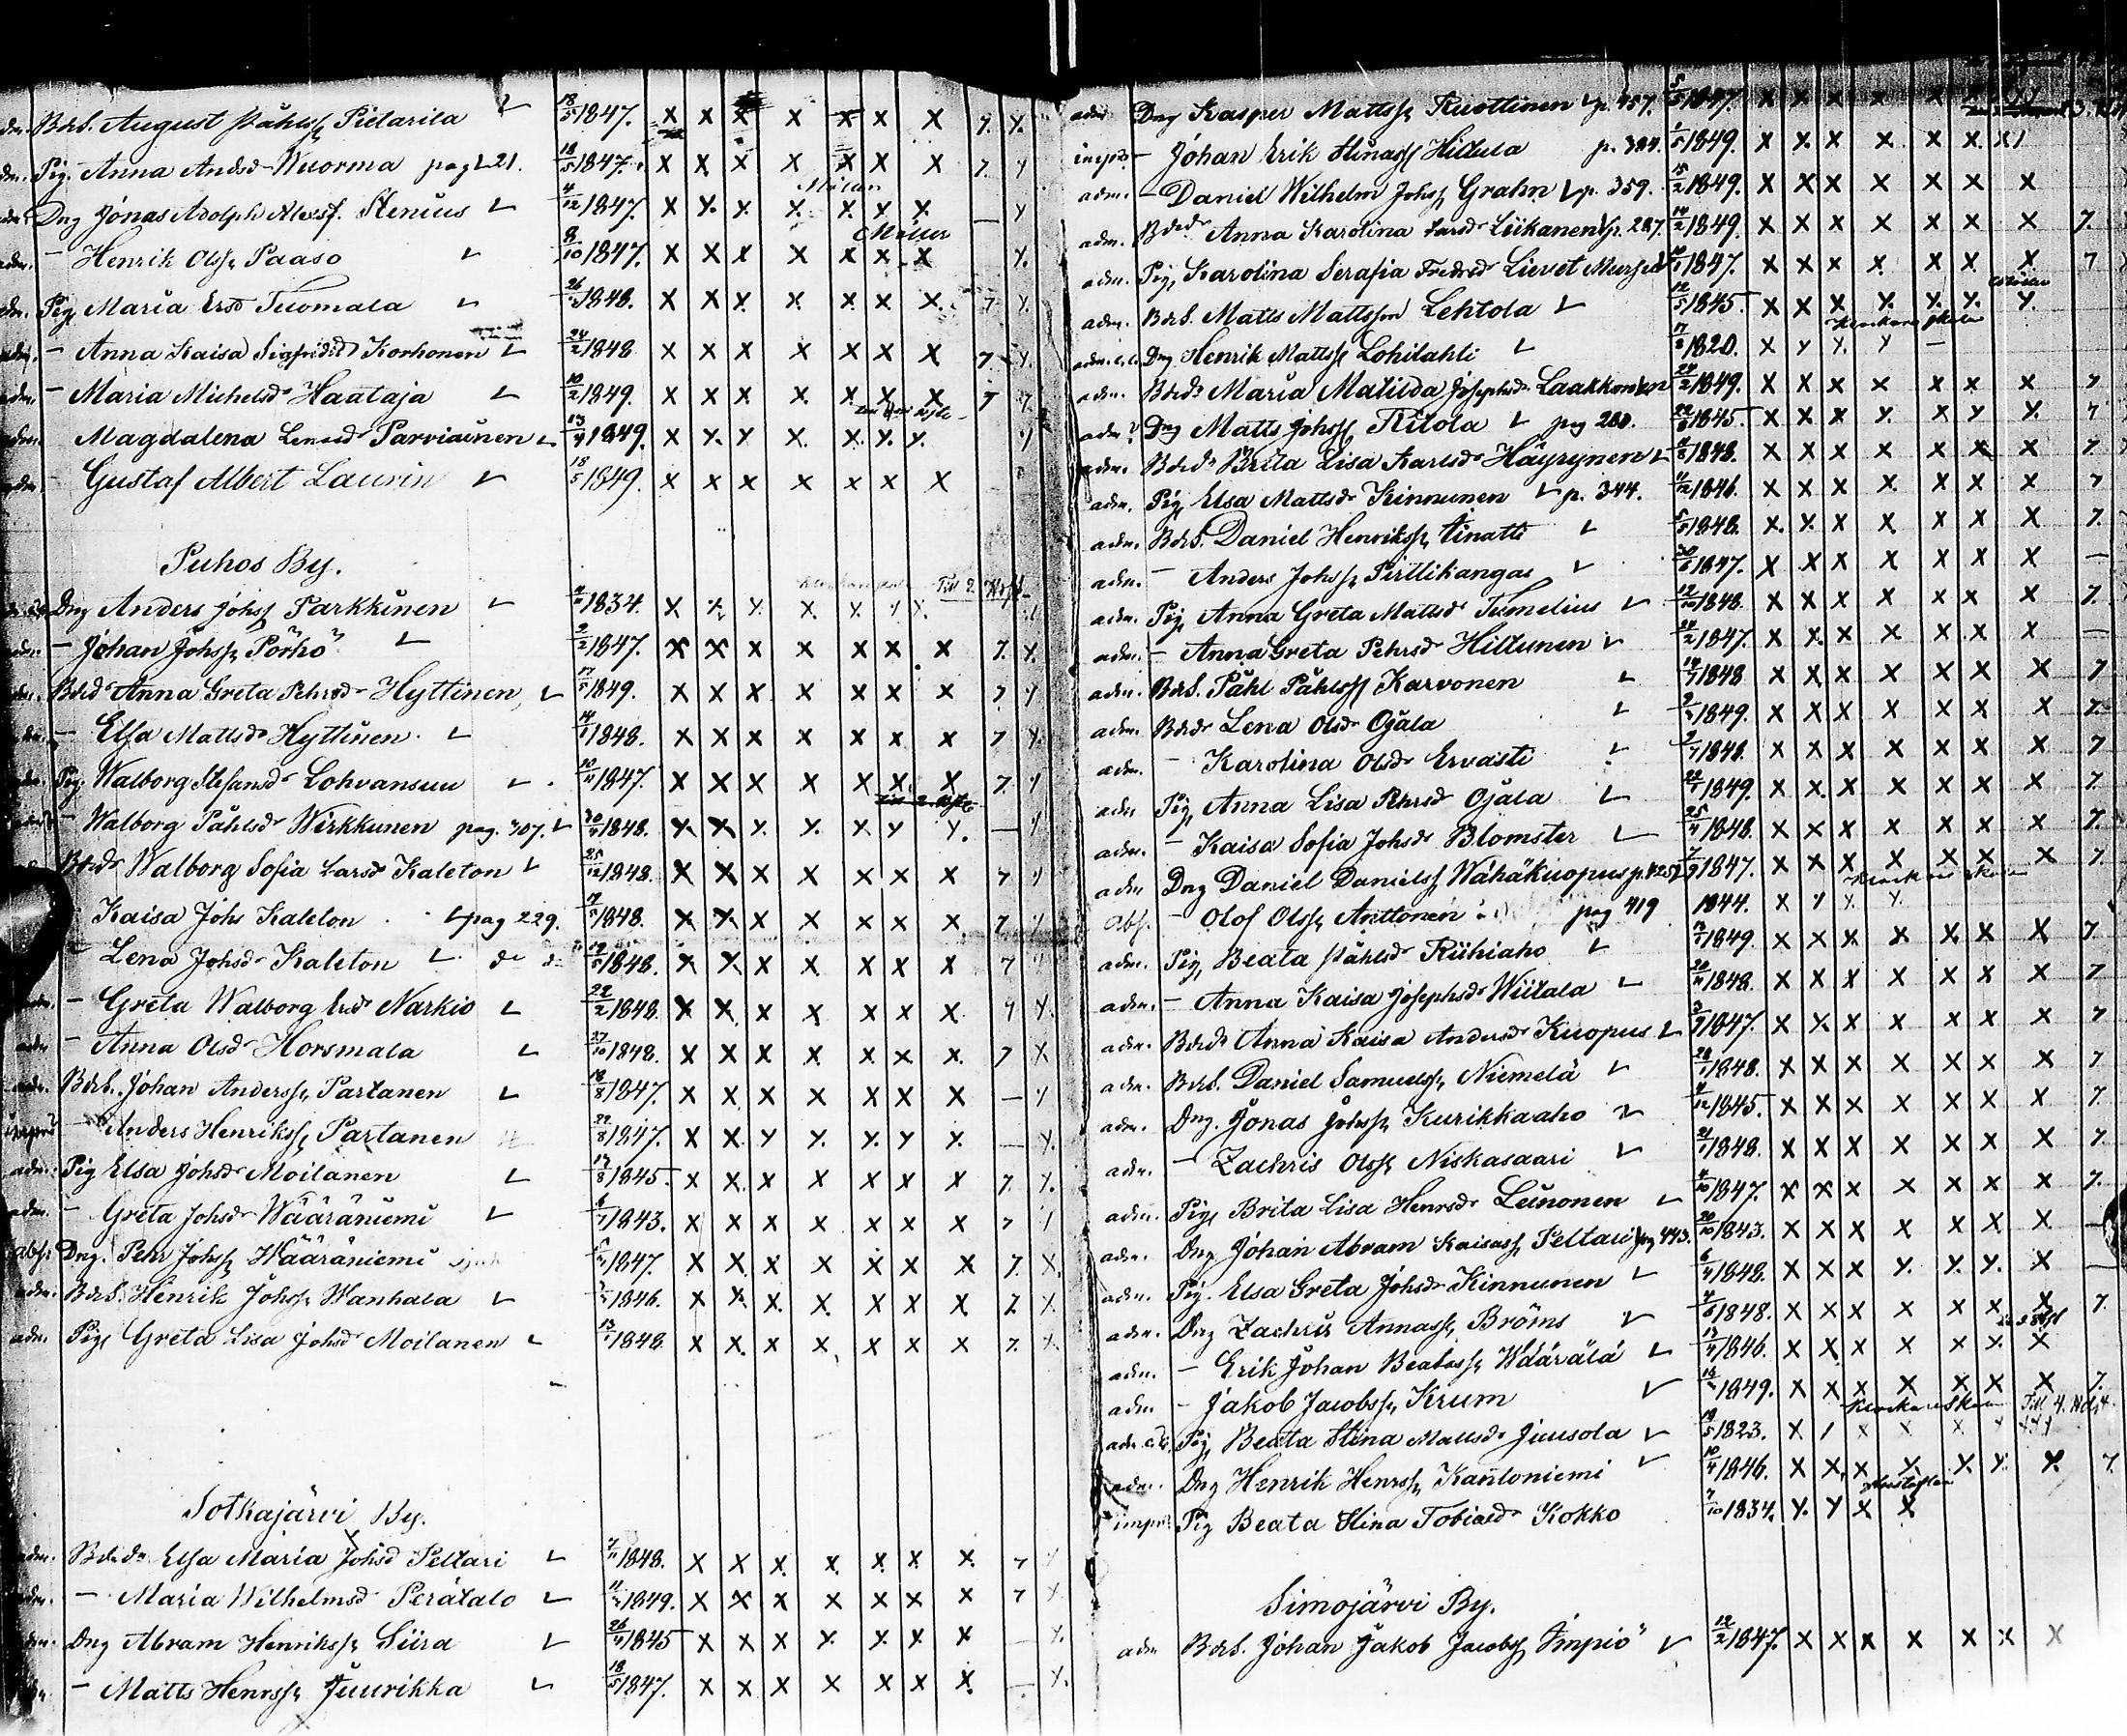 Bds. August Påhlss Pietarila 18/5 1847. X X X X X X X 7. X.
Pig. Anna Andsd Wuorma pag 21. 18/5 1847. X X X X X X X 7. X
Dng Jonas Adolph Alexsf. Stenius 4/12 1847. X X. X. X. X. X X. — X
— Henrik Olss Paaso 8/10 1847. X X X X X X. X X.
Pig Maria Ersd Tuomala 1848. X X X. X. X X X. 7 X.
adm. — Anna Kaisa Sigfridsd Korhonen 24/2 1848 X X X X X X X 7. X.
adm. — Maria Michelsd Haataja 10/2 1849. X X X. X X. X X 7 7.
Magdalena Lenasd Parviainen 13/4 1849. X X. X X. X. X. X.
Gustaf Albert Laurin 18/5 1849. X X X X X X X
Puhos By.
Dng Anders Johss Parkkinen 1834. X X. X. X. X. X X.
— Johan Johss Pörhö 2/2 1847. X X X X X X X 7. X.
Bdsd Anna Greta Pehrsd Hyttinen, 17/5 1849. X X X X X X X 7 X
— Elsa Mattsd Hyttinen 1848. X X X X X X X 7 X.
Pig. Walborg Stefansd Lohvansuu 10/11 1847. X X X X X X. X 7. X
— Walborg Påhlsd Wirkkunen pag. 307. 1848. X. X X. X. X X X. — X
Bdsd Walborg Sofia Larsd Kaleton 25/12 1848. X X X X X X X 7 X
Kaisa Johs Kaleton pag 229. 1848. X X. X X X X X. 7 X
— Lena Johsd Kaleton do do 1848. X X X X X X X 7
adm. — Greta Walborg Ersd Narkio 22/2 1848. X X. X X X X X. 7 X.
adm — Anna Olsd Horsmala 27/10 1848. X X X X. X X X. 7 X
adm. Bds. Johan Anderss Partanen 18/8 1847. X X X X X X X — X
— Anders Henrikss Partanen 22/8 1847. X X. X X. X. X X. — X.
adm. Pig Elsa Johsd Moilanen 17/8 1845. X X. X X X X X 7. X.
adm. — Greta Johsd Wääräniemi 1843. X X X X X X X 7
abs: Dng. Pehr Johss Wääräniemi 1847. X X X X X X X 7. X.
adm. Bds. Henrik Johss Wanhala 1846. X X. X. X. X X X 7. X.
adm. Pig Greta Lisa Johsd Moilanen 1848 X X. X X X X X 7. X.
Sotkajärvi By.
Bdsd Elsa Maria Johsd Peltari 7/11 1848. X X X. X. X. X X. 7 X
— Maria Wilhelmsd Perätalo 1849. X X X X X X X 7 X
Dng Abram Henrikss Siira 26/4 1845 X X X X. X. X X — X.
— Matts Henrss Juurikka 18/5 1847. X X X X X X X. — X.
adm Dng Kasper Mattss Ruottinen p. 457. 5/5 1847. X X X X X
— Johan Erik Stinass Hiltula p. 384. 1849. X X. X X. X. X.
adm. — Daniel Wilhelm Johss Grahn p. 359. 15/2 1849. X X X X X X X
adm. Bdsd Anna Karolina Larsd Liikanen p. 287. 14/2 1849. X X X X X X X 7.
adm. Pig Karolina Serafia Fredrsd Lievet Mursu 1847. X X X X. X X. X 7
adm. Bds. Matts Mattsson Lehtola 12/5 1845. X X X X. X. X. X.
Klockare skola
adm. Dng Henrik Mattss Lohilahti 1820. X X X. X —
adm. Bdsd Maria Matilda Josephsd Laakkonen 24/2 1849. X X X X X X X 7
adm. Dng Matts Johss Ritola pag 280. 1845. X X X X. X X X. 7
adm. Bdsd Brita Lisa Karlsd Häyrynen 1848. X X X X X X X 7
adm. Pig Elsa Mattsd Kinnunen p. 344. 1846. X X X X. X X X 7
adm. Bds. Daniel Henrikss Tinatti 5/5 1848. X. X. X X. X X X 7.
adm. — Anders Johss Pirttikangas 1847. X X X X X X X —
adm. Pig Anna Greta Mattsd Tumelius 12/10 1848. X X X X X X X 7.
adm. — Anna Greta Pehrsd Hiltunen 1847. X X. X X X X X —
adm. Bds. Påhl Påhlss Karvonen 1848 X X X X X X X 7
adm. Bdsd Lena Olsd Ojala 1849. X X X X X X X 7.
adm. — Karolina Olsd Ervasti 1848. X X X X X X X 7
adm Pig Anna Lisa Pehrsd Ojala 1849. X X. X X X X X 7.
adm. — Kaisa Sofia Johsd Blomster 25/4 1848. X X X X X X X 7.
adm Dng Daniel Danielss Wähäkuopus 1847. X X X X X X X 7.
Abs. — Olof Olss Anttonen pag 419 1844. X X X X.
adm. Pig Beata Påhlsd Riihiaho 1849. X X X X X. X X 7
adm. — Anna Kaisa Josephsd Wiitala 1848. X X X X X X X 7
adm. Bdsd Anna Kaisa Andersd Kuopus 1847. X X. X X X X X 7
adm. Bds. Daniel Samuelss Niemelä 1848. X X X X X X X 7
adm. Dng. Jonas Johss Kurikkaaho 1845. X X X X X X X 7.
adm. — Zachris Olss Niskasaari 1848. X X X X X X X 7.
adm. Pig Brita Lisa Henrsd Leinonen 1847. X X X X X X X 7.
adm. Dng Johan Abram Kaisass Peltari pag 443. 20/10 1843. X X X X X X X —
adm. Pig. Elsa Greta Johsd Kinnunen 1848. X X X X. X. X. X —
adm. Dng Zachris Annass Bröms 1848. X X X X X X X 7.
adm. — Erik Johan Beatass Wäärälä 1846. X X X X X X. X
adm — Jakob Jacobss Krum 1849. X X X X X X X 7.
Klockare Skola Till 4.
adm. Pig Beata Stina Mattsd Juusola 1823. X
adm. Dng Henrik Henrss Kantoniemi 10/4 1846. X X. X X. X. X. X.
Pig Beata Stina Tobiasd Kokko 7/10 1834. X. X X X
Simojärvi By.
adm Bds. Johan Jakob Jacobss Impiö 12/2 1847. X X X X X X X